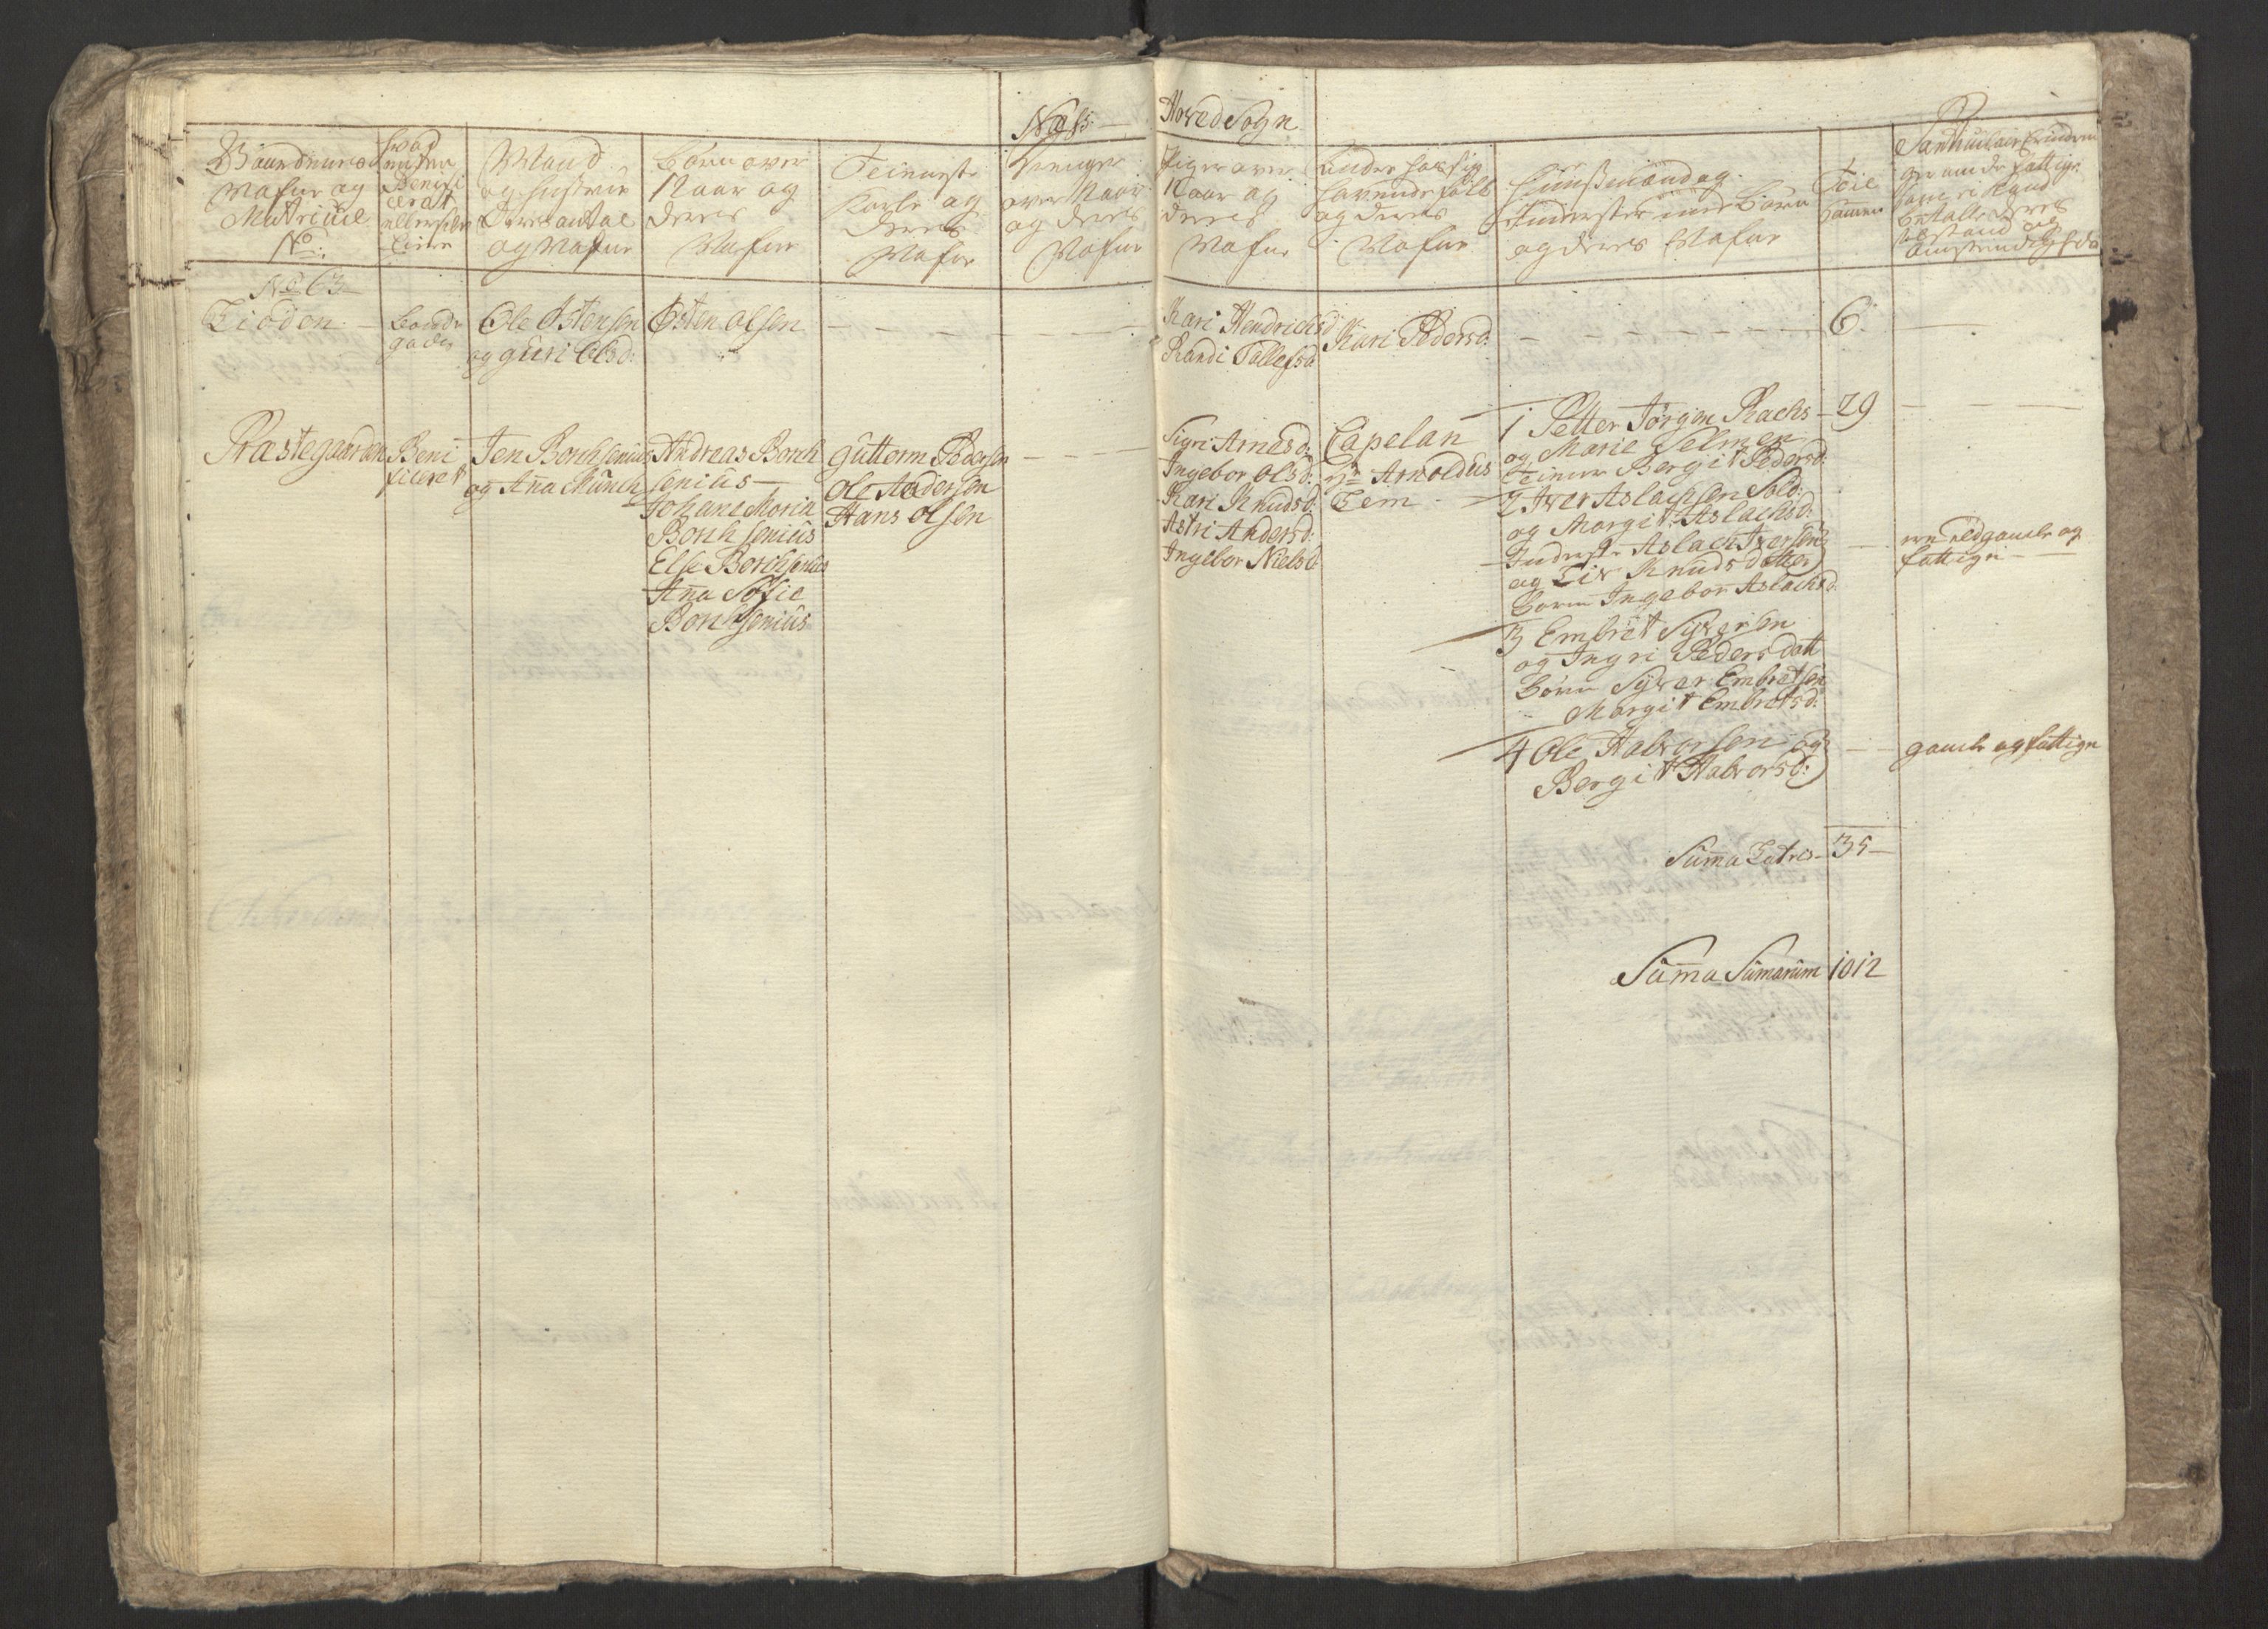 Næss Hoved Sogn
Gaardernes
Nafne og
Matricul
No:
hvad
enten
Benefi
ceret
eller selv
Eier
Mand
og Hustrue
Deres antal
og Nafne
Børn over
12 aar og
deres
Nafne
Tienneste
Karle og
deres
Nafne
Drenger
over 12 aar
og deres
Nafne
Piger over
12 aar og
deres
Nafne
Inderster sig
havende folk
og deres
Nafne
Huusmænd og
Inderster med Børn
og deres Nafne
Tilsammen
No 63
Liødon
bonde
gods
Ole Ostensen
og guri Olsd:
Østen olsen
Kari Hendrichsd
Randi Tollefsd
Kari Pedersd:
6
Præstegaarden
Bene
ficeret
Jen Borchsenius
og Aña Münch
Andreas Borch
senius
Johane Maria
Borchsenius
Else Borchsenius
Aña Sofie
Borchsenius
gutterm Pedersen
Ole Andersen
Hans olsen
Sigri Arnesd:
Ingebor olsd:
Kari Knudsd:
Astri Andersd:
Ingebor Nielsd
Capelan
Hr Arnoldus
Tem
1 Petter Jørgen Rachs
og Marie Selmer
tiener Bergit Pedersd:
2 Iver Aslachsen Sold:
og Margit Aslachsd:
Inderste Aslach Iversen
og Liv Knuds datter
børn Ingebor Aslachsd:
3 Embret Syversen
og Ingri Peders datt
børn Syver Embretsen
Margit Embretsd:
4 Ole Halvorsen og
Bergit Halvorsd:
29
ere ældgamle og
fattige
gamle og fattige
Suma Latres 35
Suma Sumarum 1012